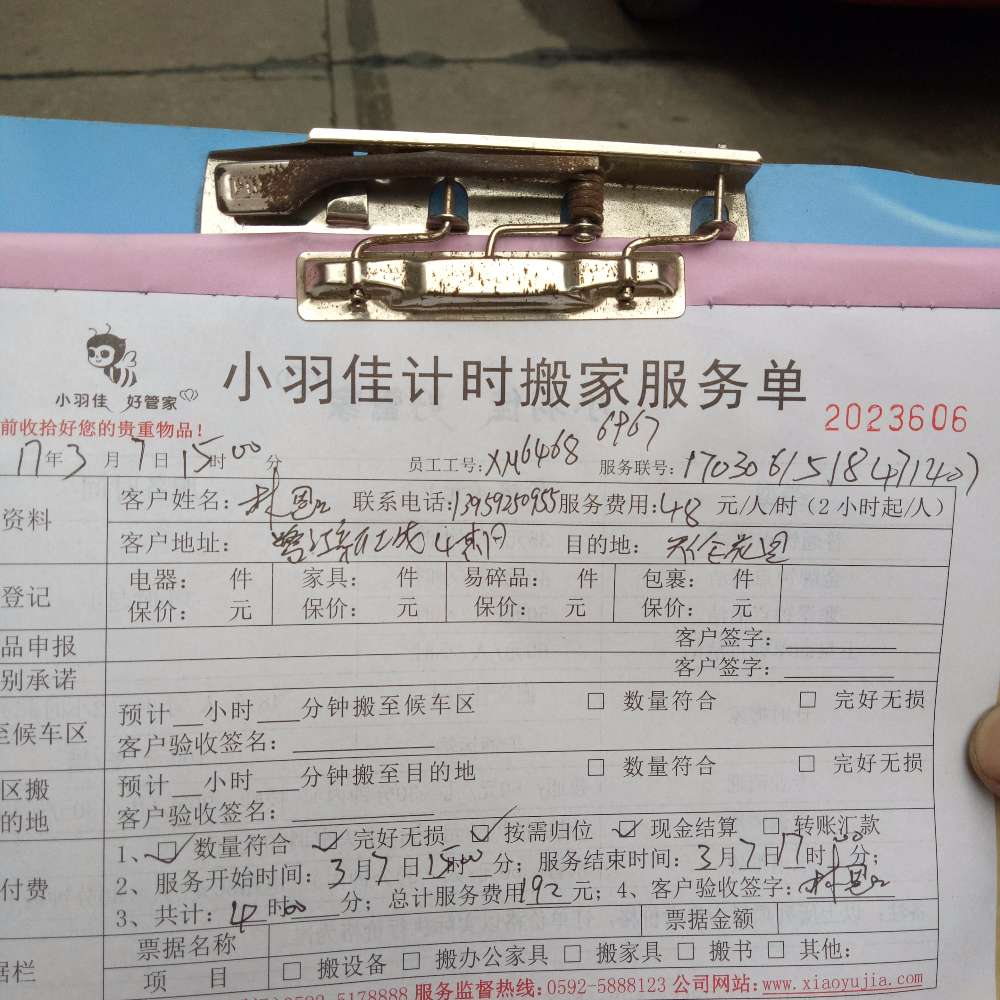 小羽佳计时搬家服务单
小羽佳 好管家
2023606
前收拾好您的贵重物品！
17年3月7日15时00分 员工工号：XM6468 6967 服务联号：170306151847140
资料 客户姓名： 联系电话：13959250955 服务费用：48 元/人/时（2小时起/人）
客户地址： 目的地：
登记 电器： 件 家具： 件 易碎品： 件 包裹： 件
保价： 元 保价： 元 保价： 元 保价： 元
品申报 客户签字：
别承诺 客户签字：
至候车区 预计 小时 分钟搬至候车区 □ 数量符合 □ 完好无损
客户验收签名：
区搬 预计 小时 分钟搬至目的地 □ 数量符合 □ 完好无损
的地 客户验收签名：
1、☑ 数量符合 ☑ 完好无损 ☑ 按需归位 ☑ 现金结算 □ 转账汇款
付费 2、服务开始时间：3月7日15时00分；服务结束时间：3月7日17时00分；
3、共计：4时00分；总计服务费用192元；4、客户验收签字：
票据名称 票据金额
据栏 项 目 □ 搬设备 □ 搬办公家具 □ 搬家具 □ 搬书 □ 其他：
5178888 服务监督热线：0592-5888123 公司网站：www.xiaoyujia.com